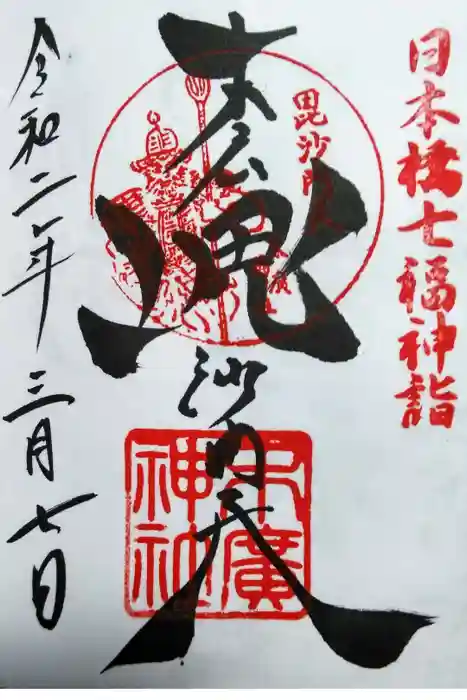 日本橋七福神詣
毘沙門
末廣
毘沙門天
末廣神社
令和二年三月七日